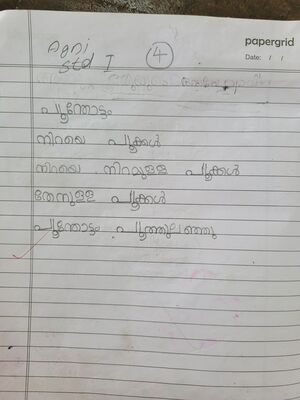 Agni
std I
4
papergrid
Date: / /
പൂന്തോട്ടം
നിറയെ പൂക്കൾ
നിറയെ നിറമുള്ള പൂക്കൾ
തേനുള്ള പൂക്കൾ
പൂന്തോട്ടം പൂത്തുലഞ്ഞു